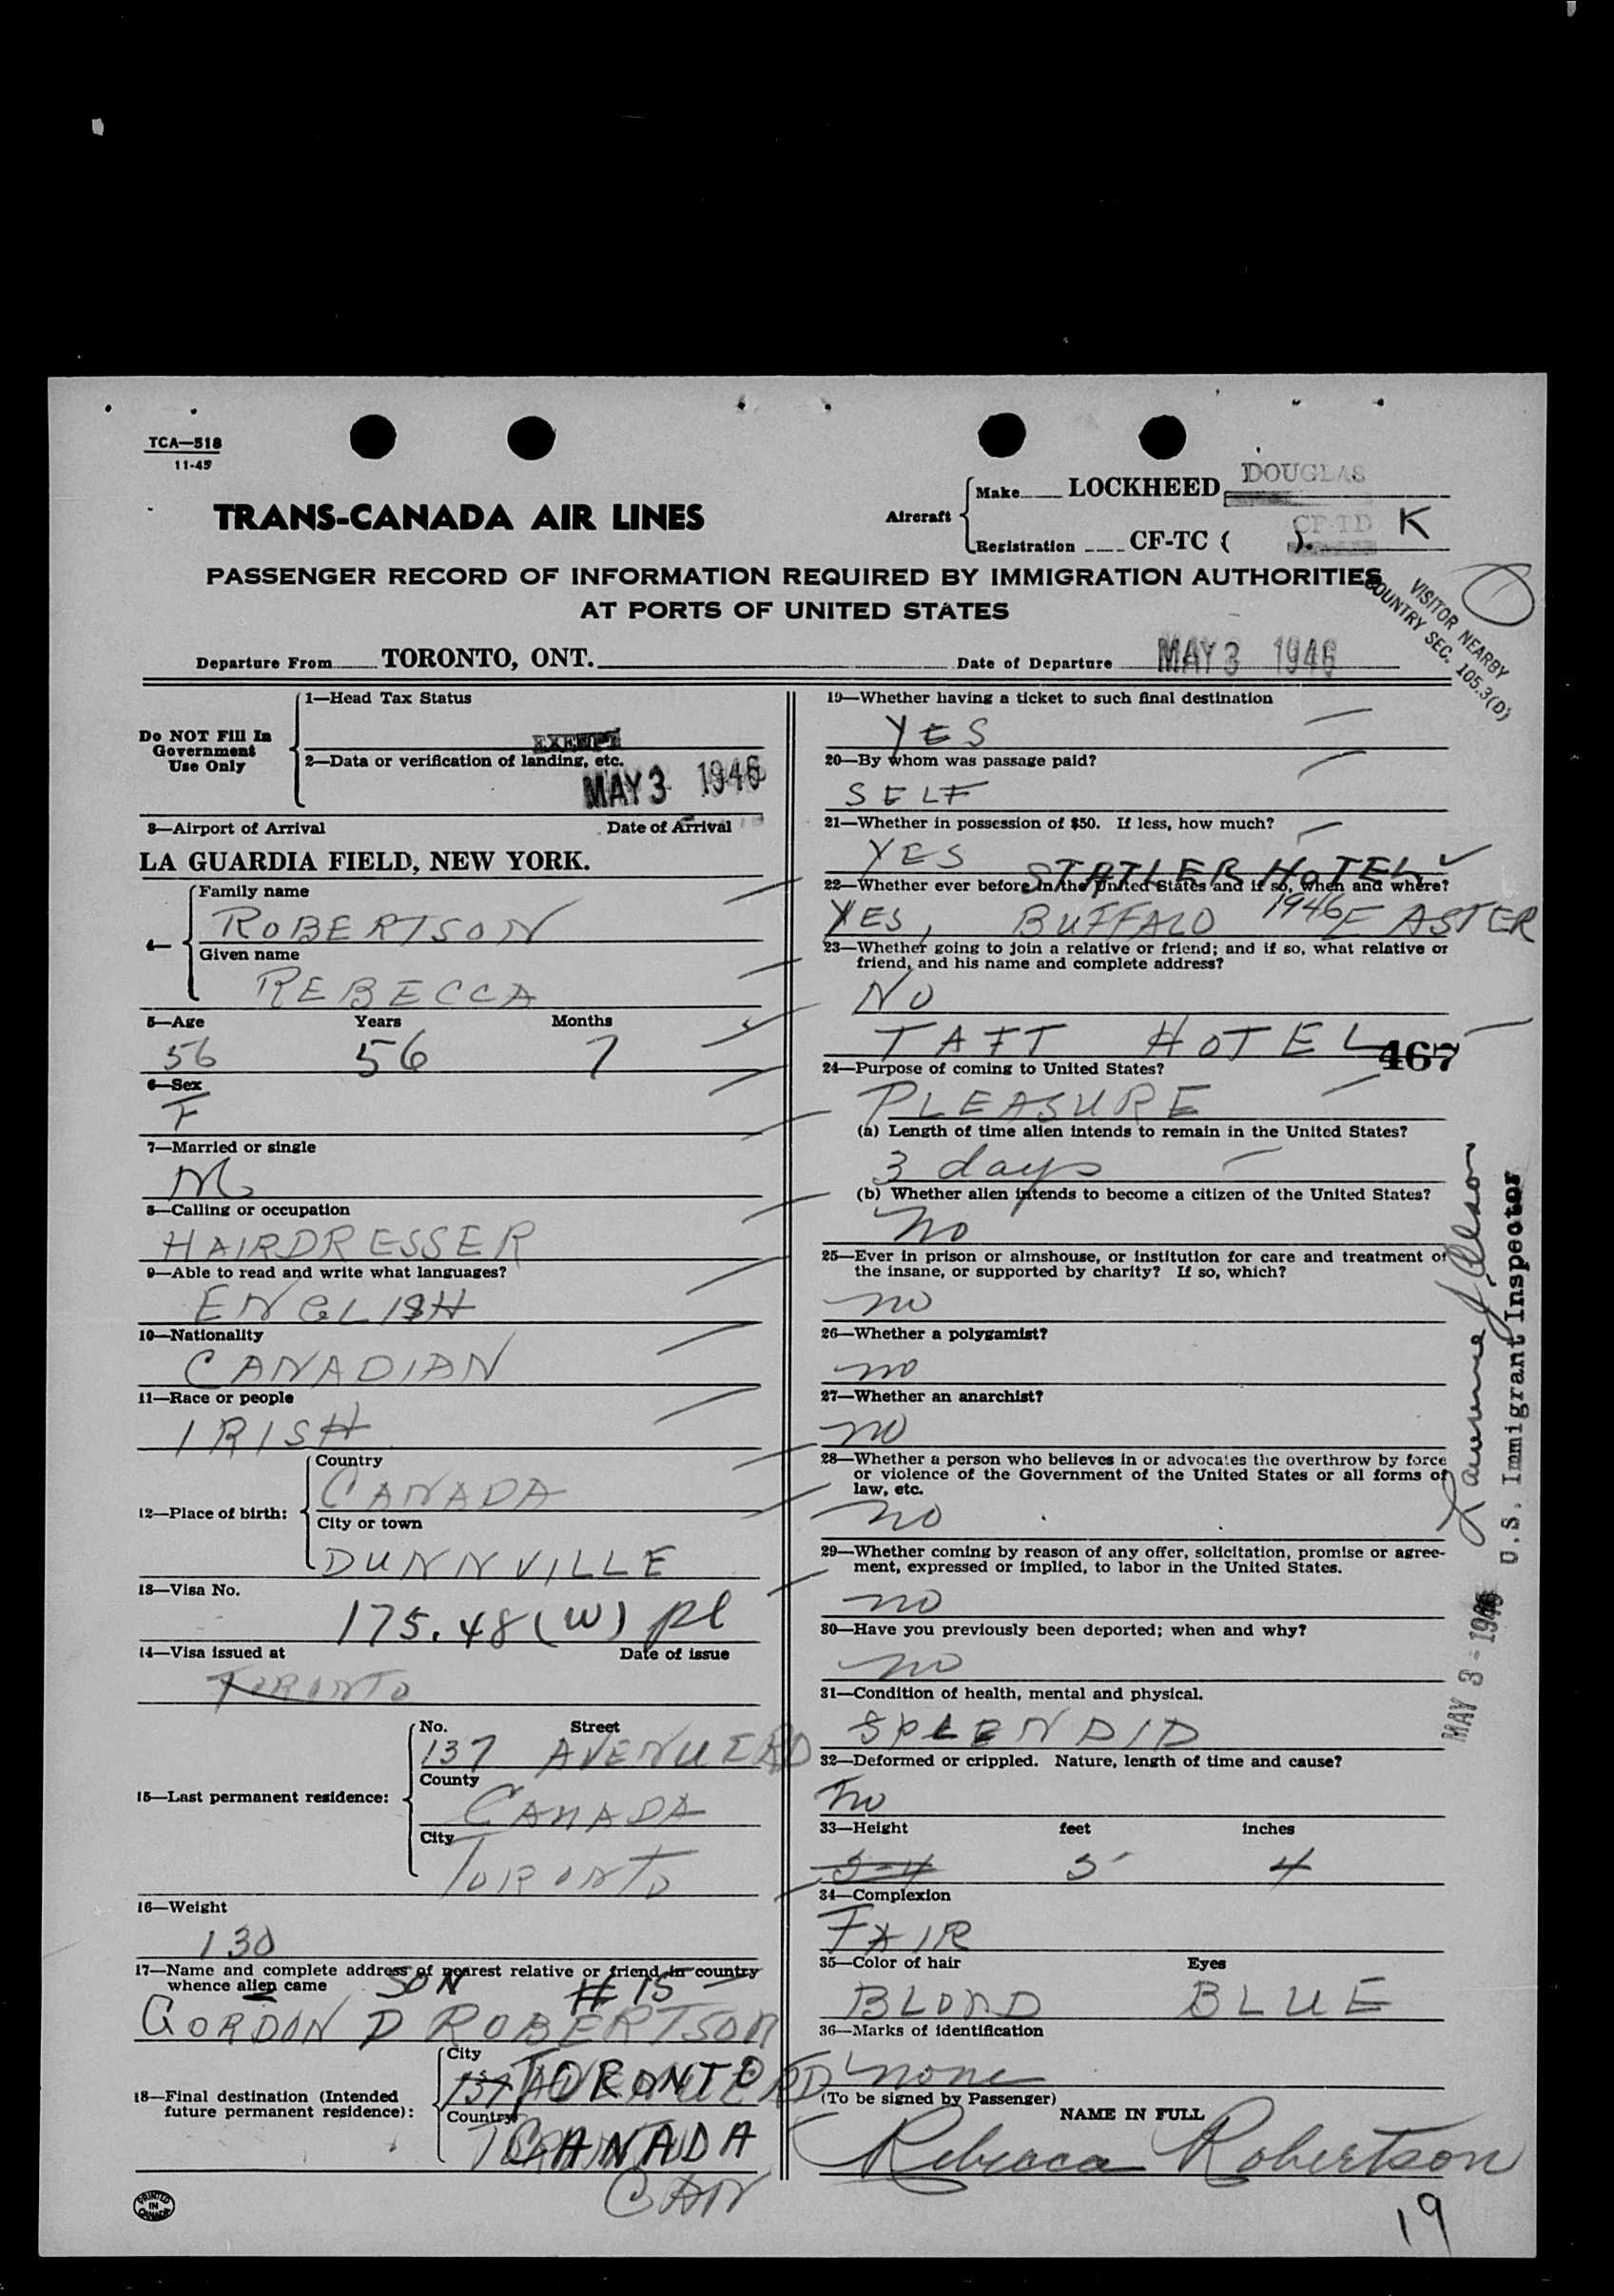 TCA—518
11-45
TRANS-CANADA AIR LINES
Aircraft
Make LOCKHEED DOUGLAS
Registration CF-TC ( ). CF-TD K
PASSENGER RECORD OF INFORMATION REQUIRED BY IMMIGRATION AUTHORITIES
AT PORTS OF UNITED STATES
VISITOR NEARBY
COUNTRY SEC. 105.3(D)
Departure From TORONTO, ONT. Date of Departure MAY 3 1946
Do NOT Fill In
Government
Use Only
1—Head Tax Status
EXEMPT
2—Data or verification of landing, etc.
MAY 3 1946
3—Airport of Arrival Date of Arrival
LA GUARDIA FIELD, NEW YORK.
4—
Family name
ROBERTSON
Given name
REBECCA
5—Age Years Months
56 56 7
6—Sex
F
7—Married or single
M
8—Calling or occupation
HAIRDRESSER
9—Able to read and write what languages?
ENGLISH
10—Nationality
CANADIAN
11—Race or people
IRISH
12—Place of birth:
Country
CANADA
City or town
DUNNVILLE
13—Visa No.
175.48(W) pl
14—Visa issued at Date of issue
TORONTO
15—Last permanent residence:
No. Street
137 AVENUE RD
County
CANADA
City
TORONTO
16—Weight
130
17—Name and complete address of nearest relative or friend in country
whence alien came SON # 15
GORDON D ROBERTSON
18—Final destination (Intended
future permanent residence):
City
137 AVENUE RD
TORONTO
Country
TORONTO
CANADA
CAN
PRINTED
IN
CANADA
19—Whether having a ticket to such final destination
YES
20—By whom was passage paid?
SELF
21—Whether in possession of $50. If less, how much?
YES STATLER HOTEL
22—Whether ever before in the United States and if so, when and where?
YES, BUFFALO 1946 EASTER
23—Whether going to join a relative or friend; and if so, what relative or
friend, and his name and complete address?
NO
TAFT HOTEL 467
24—Purpose of coming to United States?
PLEASURE
(a) Length of time alien intends to remain in the United States?
3 days
(b) Whether alien intends to become a citizen of the United States?
no
25—Ever in prison or almshouse, or institution for care and treatment of
the insane, or supported by charity? If so, which?
no
26—Whether a polygamist?
no
27—Whether an anarchist?
no
28—Whether a person who believes in or advocates the overthrow by force
or violence of the Government of the United States or all forms of
law, etc.
no
29—Whether coming by reason of any offer, solicitation, promise or agree-
ment, expressed or implied, to labor in the United States.
no
30—Have you previously been deported; when and why?
no
31—Condition of health, mental and physical.
SPLENDID
32—Deformed or crippled. Nature, length of time and cause?
no
33—Height feet inches
5-4 5 4
34—Complexion
FAIR
35—Color of hair Eyes
BLOND BLUE
36—Marks of identification
none
(To be signed by Passenger)
NAME IN FULL
Rebecca Robertson
19
U.S. Immigrant Inspector
MAY 3 - 1946